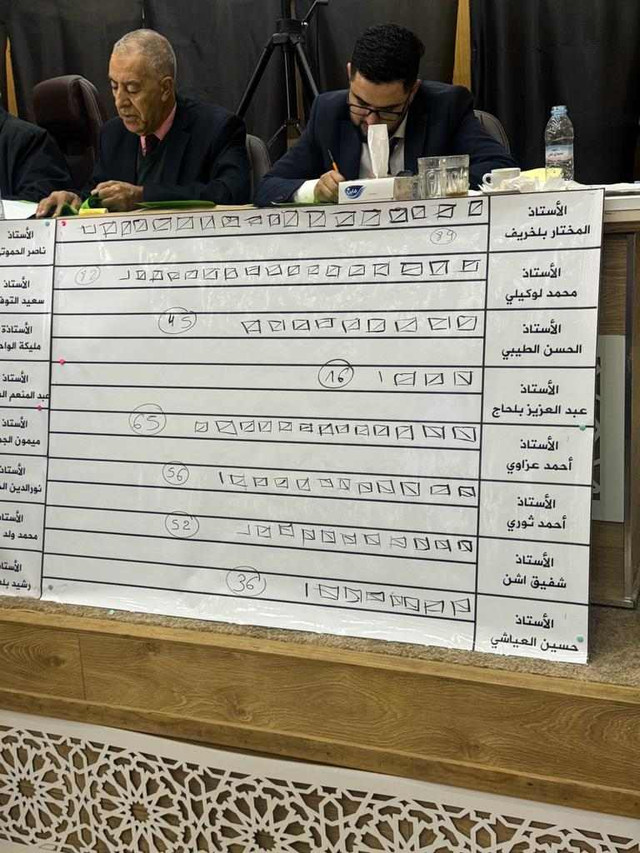 الأستاذ
المختار بلخريف
89
الأستاذ
محمد لوكيلي
82
الأستاذ
الحسن الطيبي
45
الأستاذ
عبد العزيز بلحاج
16
الأستاذ
أحمد عزاوي
65
الأستاذ
أحمد ثوري
56
الأستاذ
شفيق اشن
52
الأستاذ
حسين العياشي
36
الأستاذ
ناصر
الأستاذ
سعيد
الأستاذة
مليكة
الأستاذ
عبد المنعم
الأستاذ
ميمون
الأستاذ
نورالدين
الأستاذ
محمد ولد
الأستاذ
رشيد